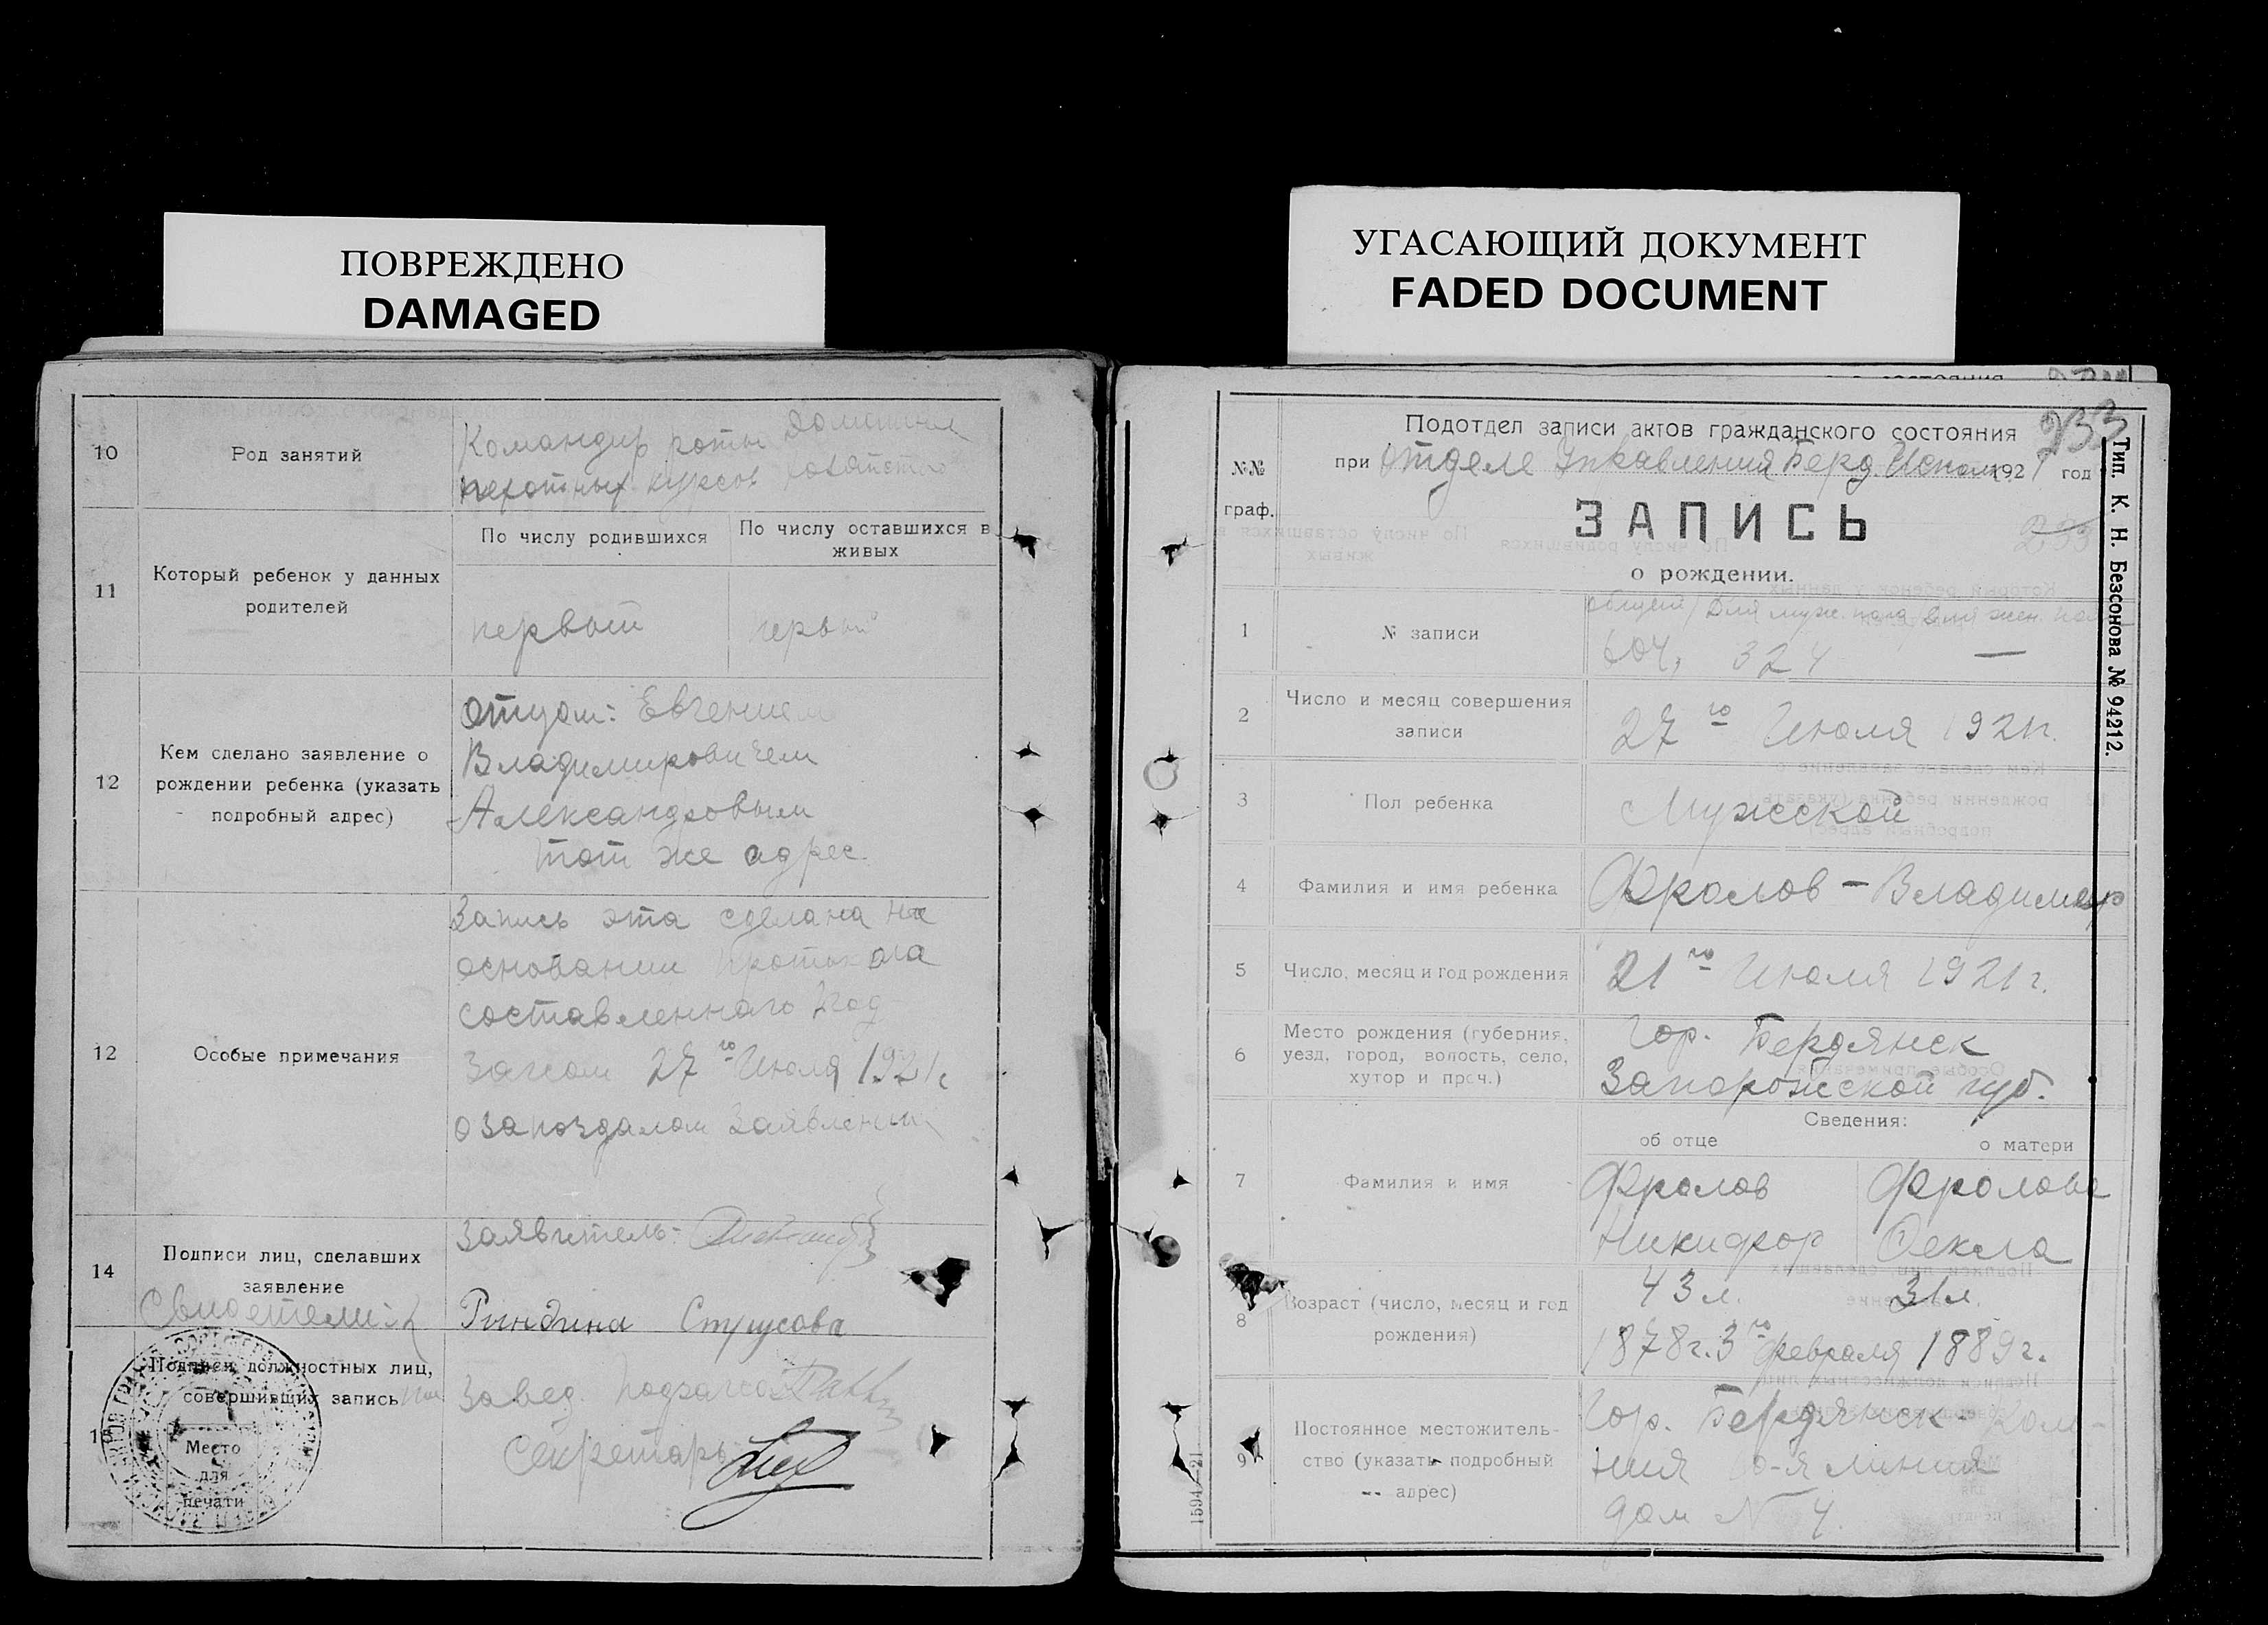 ПОВРЕЖДЕНО
DAMAGED
10
Род занятий
Командир роты
Домашнее
пехотных курсов
хозяйство
11
Который ребенок у данных
родителей
По числу родившихся
По числу оставшихся в
живых
первый
первый
12
Кем сделано заявление о
рождении ребенка (указать
подробный адрес)
Отцом: Евгением
Владимировичем
Александровым
тот же адрес.
12
Особые примечания
Запись эта сделана на
основании протокола
составленного
Загсом 27го Июля 1921г
о запоздалом заявлении
14
Подписи лиц, сделавших
заявление
Свидетели:
Заявитель:-
Рындина Струсова
15
Подписи должностных лиц,
совершивших запись
Место
для
печати
Завед.
Секретарь
УГАСАЮЩИЙ ДОКУМЕНТ
FADED DOCUMENT
233
Подотдел записи актов гражданского состояния
при Отделе Управления Берд. Исполк. 1921 год
№№
граф.
ЗАПИСЬ
о рождении.
233
1
№ записи
общий / Для муж. пола / Для жен. пола
604, 324 —
2
Число и месяц совершения
записи
27го Июля 1921г.
3
Пол ребенка
Мужской
4
Фамилия и имя ребенка
Фролов - Владимир
5
Число, месяц и год рождения
21го Июля 1921г.
6
Место рождения (губерния,
уезд, город, волость, село,
хутор и проч.)
Гор. Бердянск
Запорожской губ.
Сведения:
об отце
о матери
7
Фамилия и имя
Фролов
Фролова
Никифор
Фекла
8
Возраст (число, месяц и год
рождения)
43 л.
31 л.
1878г. 3го февраля 1889г.
9
Постоянное местожитель-
ство (указать подробный
адрес)
Гор. Бердянск - Коло-
ния я линия
дом N 4.
Тип. К. Н. Безсонова № 94212.
1594—21